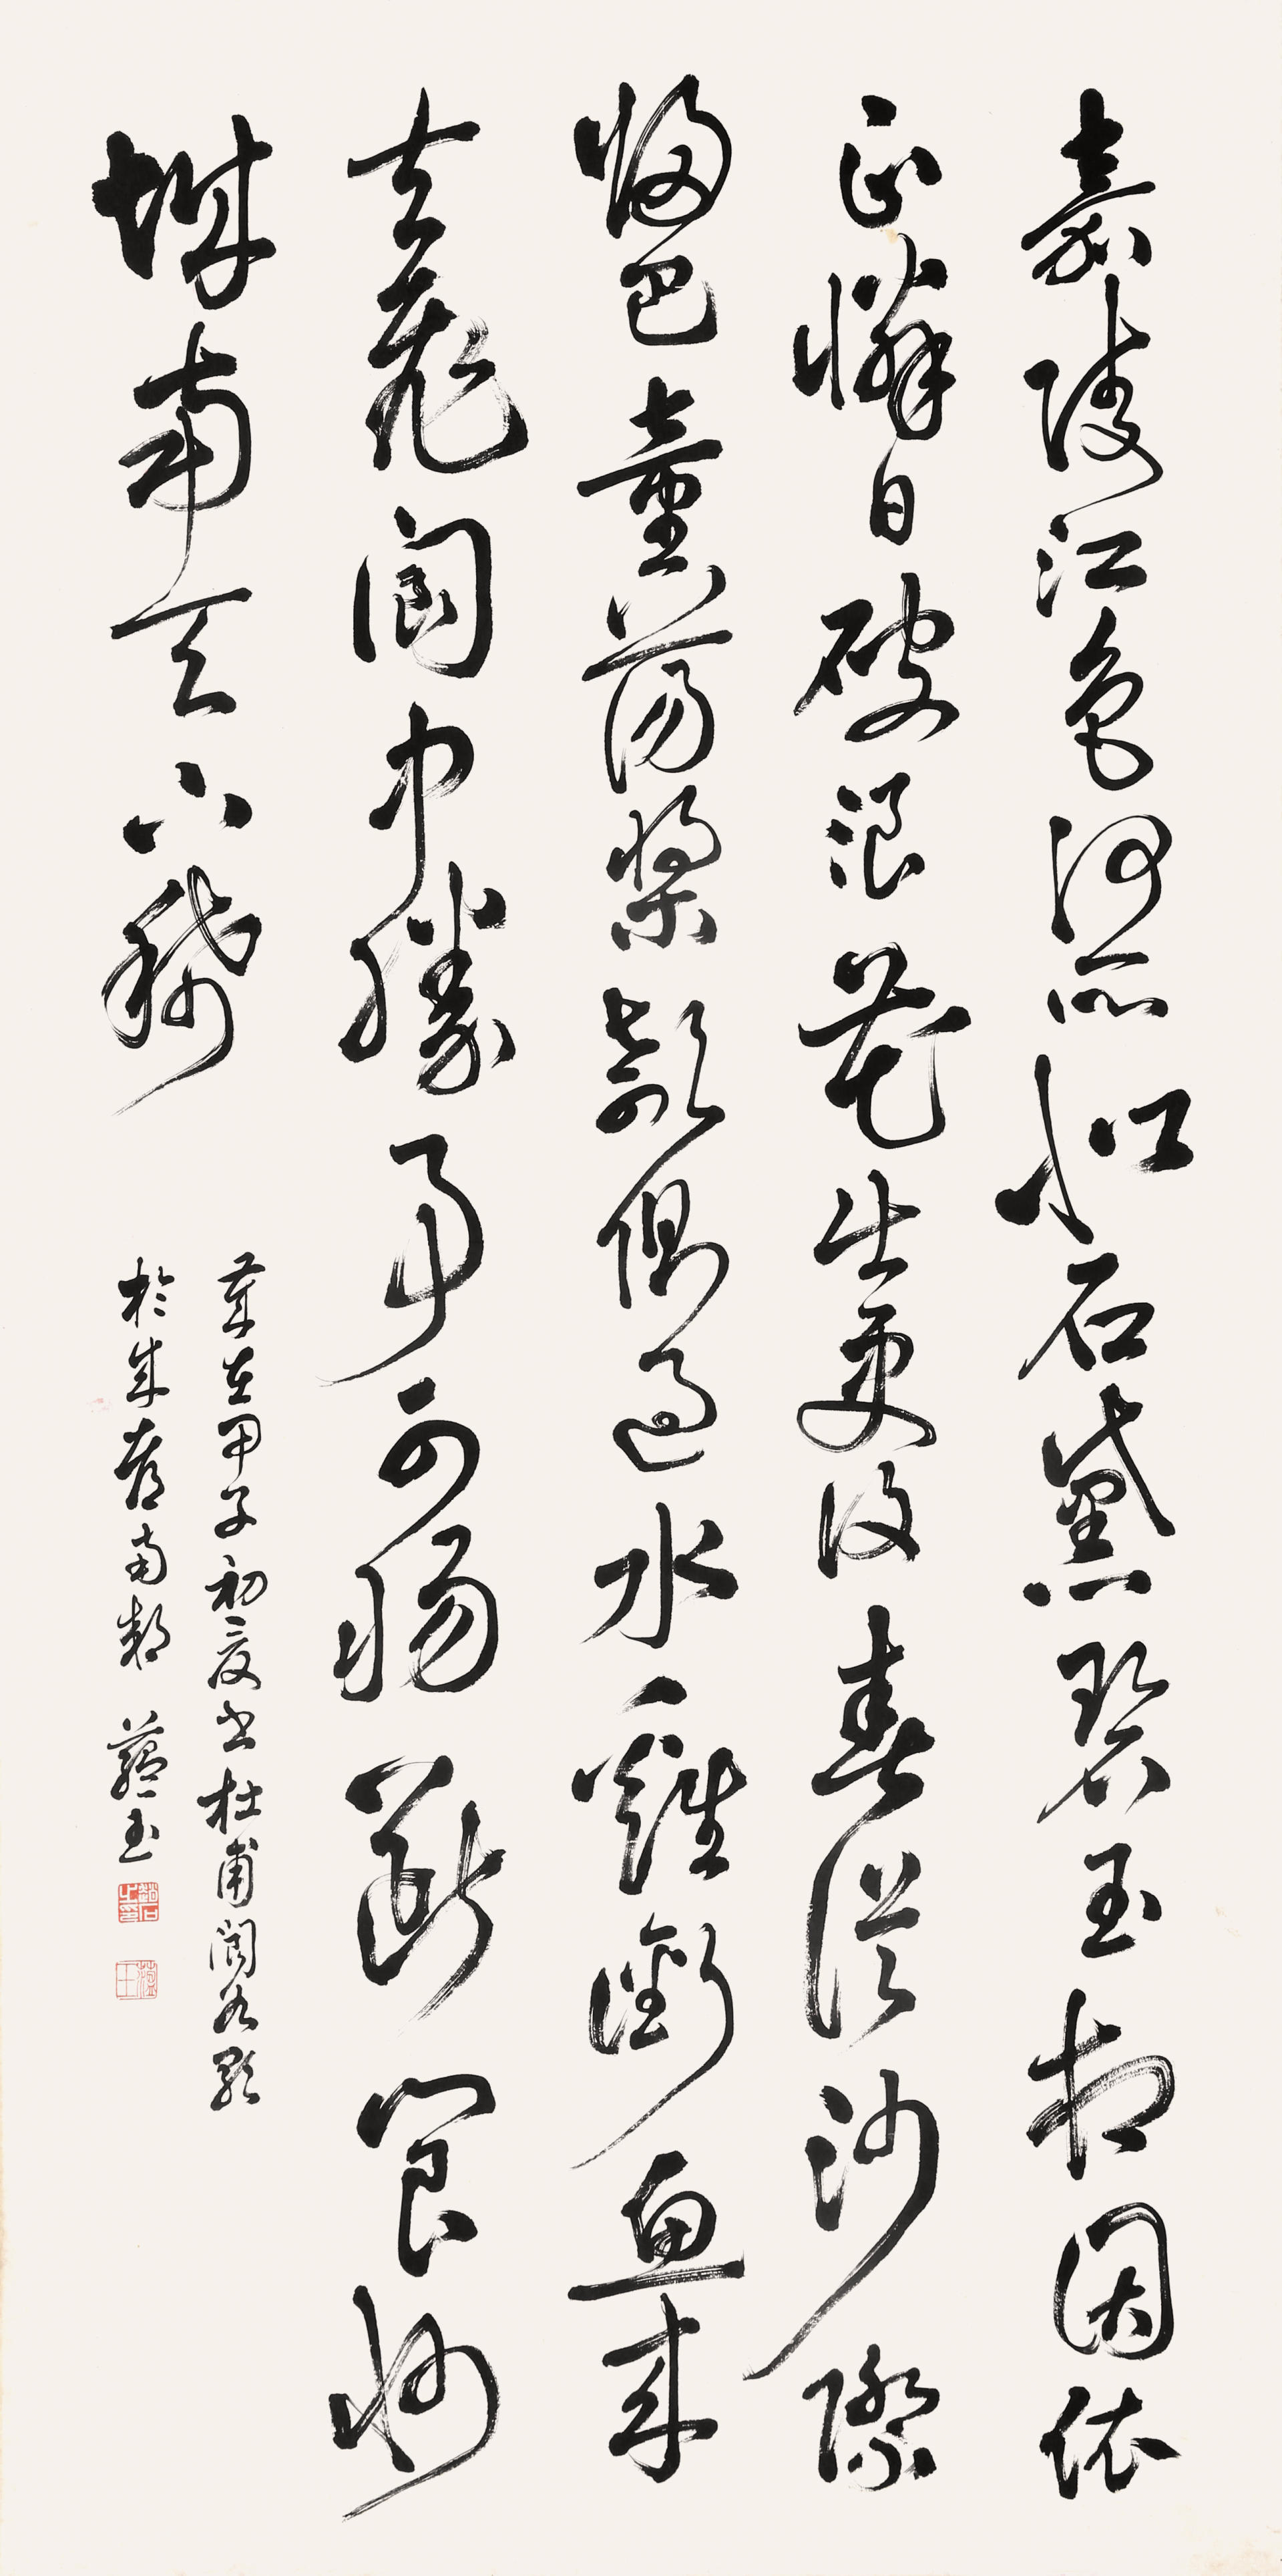 嘉陵江色何所似石黛碧玉相因依
正憐日破浪花出更復春從沙際
歸巴童蕩槳欹側過水雞銜魚來
去飛閬中勝事可腸斷閬州
城南天下稀
歲在甲子初夏書杜甫閬水歌
於成都南郊 蘊玉
蘊玉